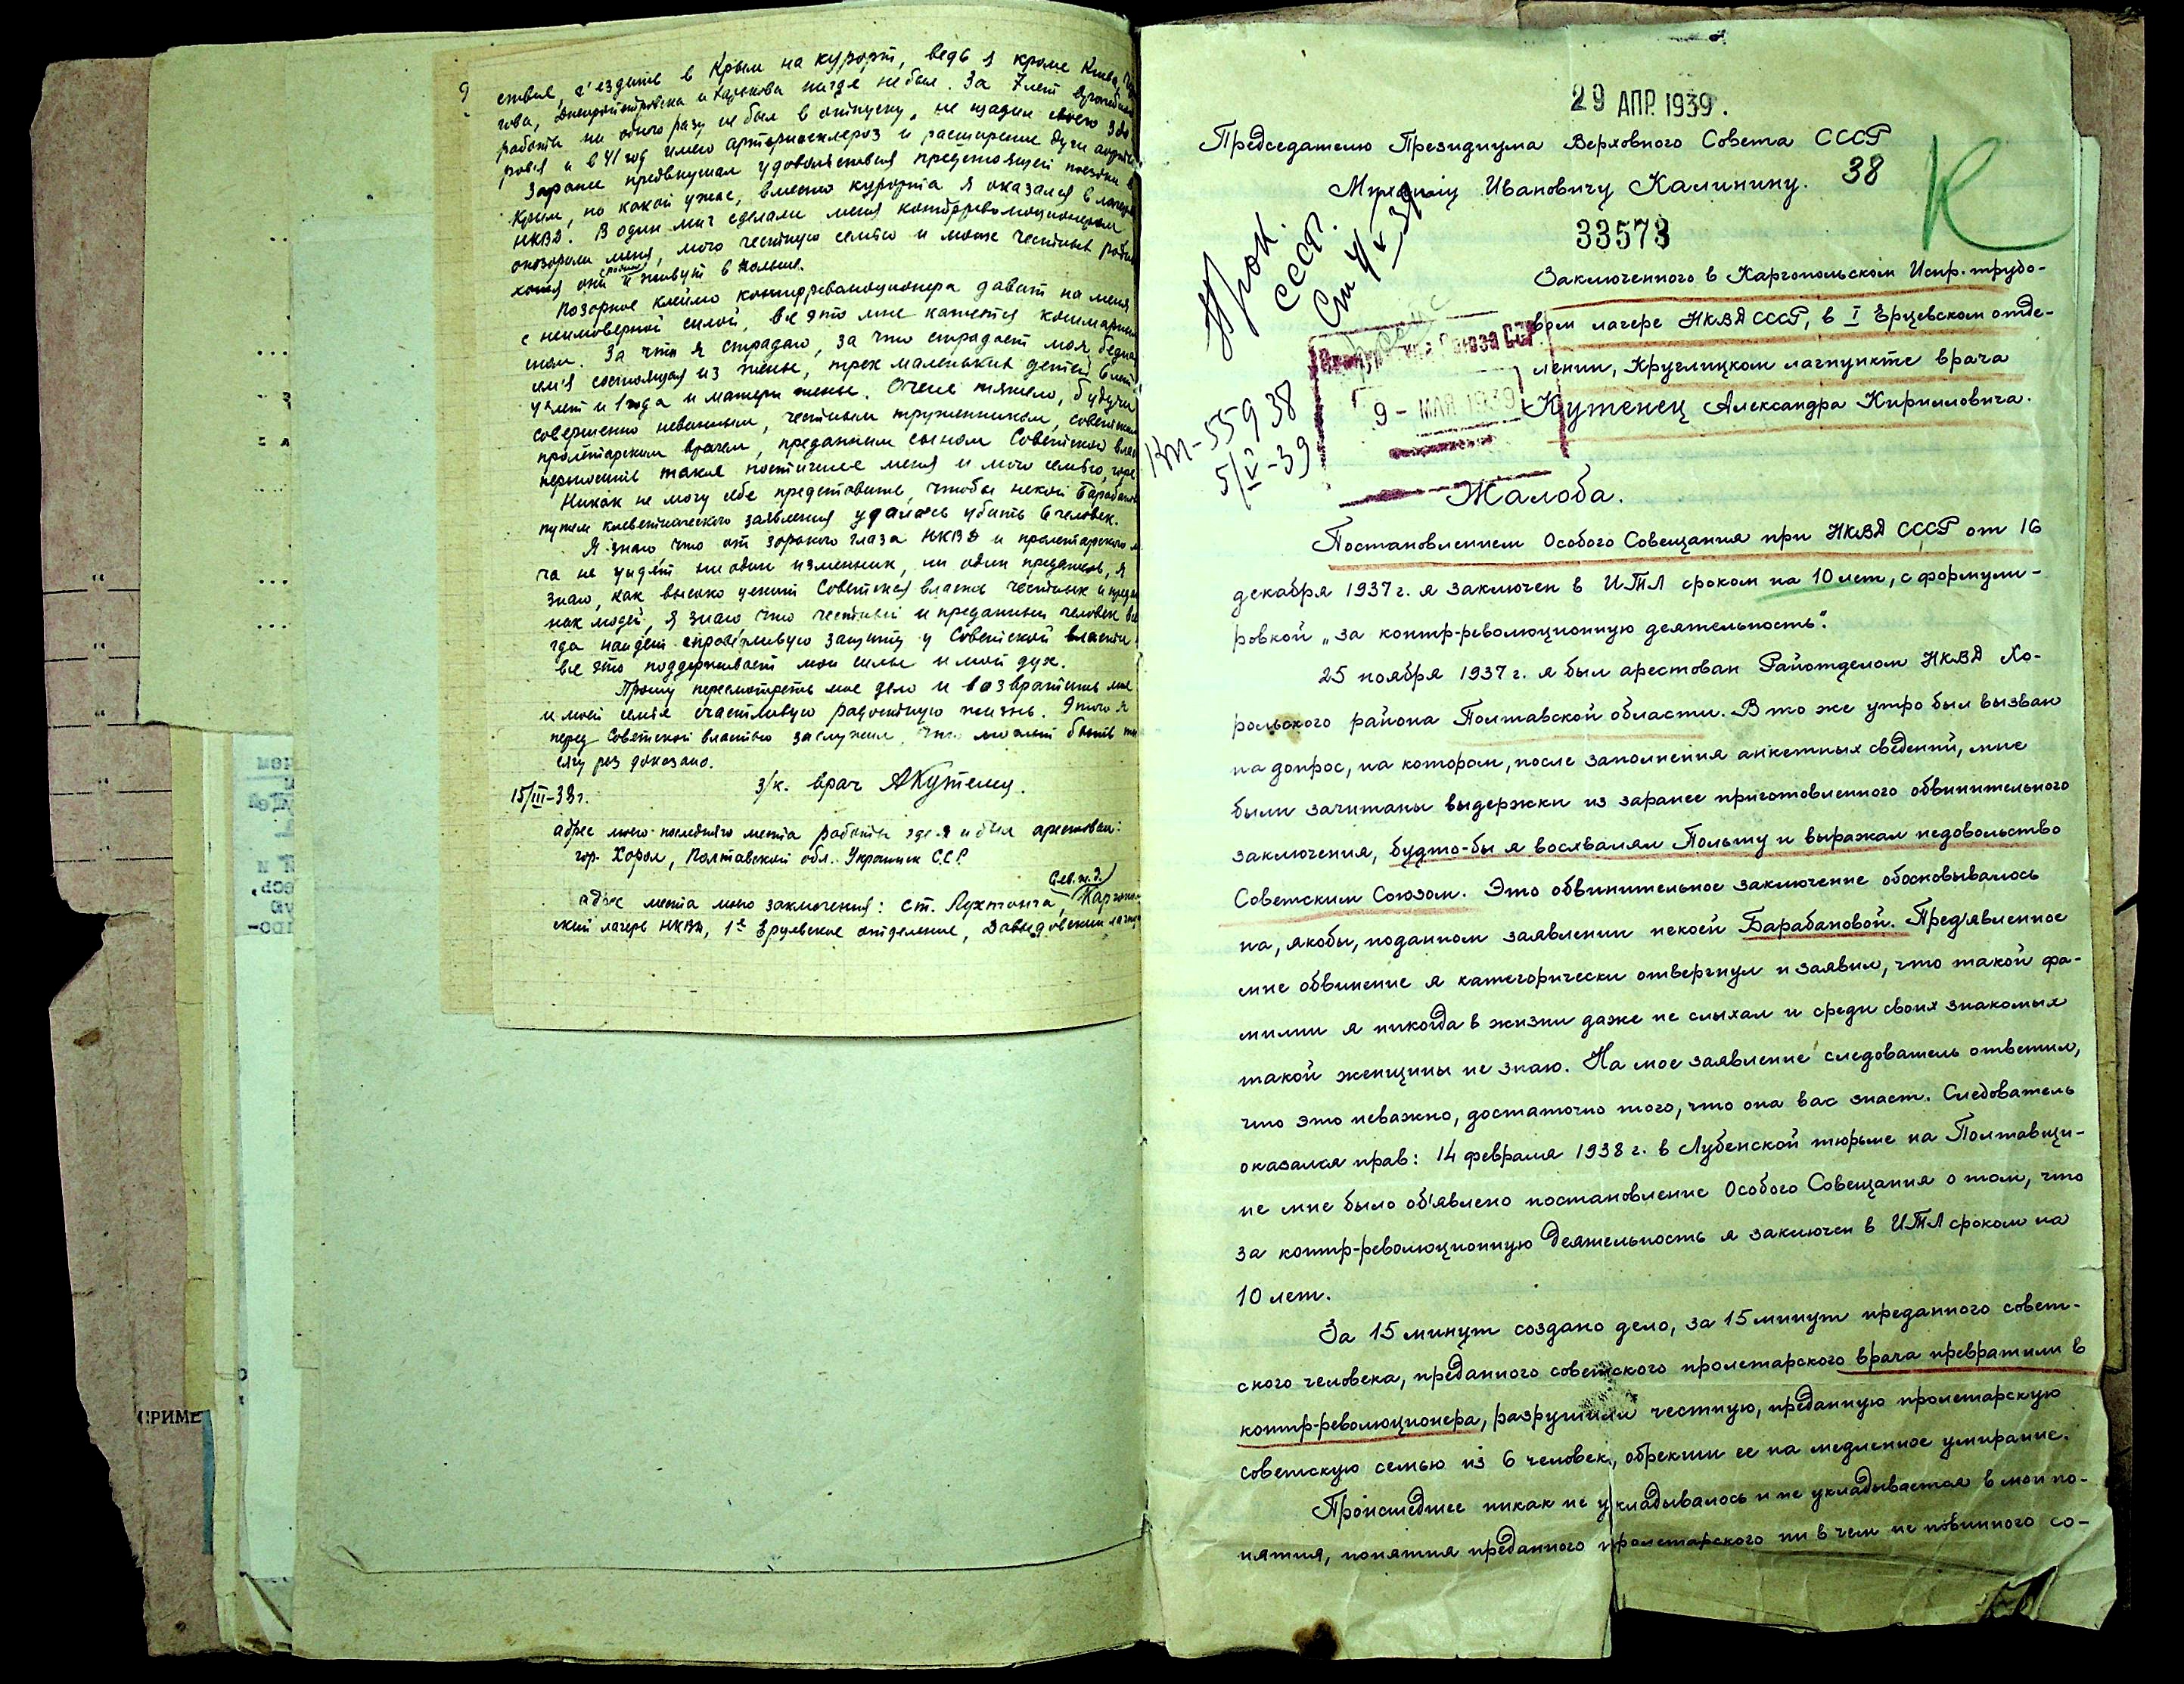 ствие, с'ездить в Крым на курорт, ведь я кроме Киева,
гова, Днепропетровска и Харькова нигде не был. За 7 лет врачебной
работы ни одного разу не был в отпуску, не щадил своего здо
ровья и в 41 год имею артериосклероз и расширение дуги аорты
Заранее предвкушал удовольствия предстоящей поездки в
Крым, но какой ужас, вместо курорта я оказался в лагере
НКВД. В один миг сделали меня контрреволюционером
опозорили меня, мою честную семью и моих честных
хотя они и живут в Польше.
Позорное клеймо контрреволюционера давит на меня
с неимоверной силой, все это мне кажется кошмарным
сном. За что я страдаю, за что страдает моя бедная
сем'я состоящая из жены, трех маленьких детей 6 лет
4 лет и 1 года и матери жены. Очень тяжело, будучи
совершенно невинным, честным тружеником, советским
пролетарским врачем, преданным сыном Советской вла
переносить такое постигшее меня и мою семью, горе
Никак не могу себе представить, чтобы некой Барабановой
путем клеветнического заявления удалось убить 6 человек.
Я знаю что от зоркого глаза НКВД и пролетарского
ча не уйдет ни один изменник, ни один предатель, я
знаю, как высоко ценит Советская власть честных и предан
ных людей, я знаю что честный и преданный человек все
гда найдет справедливую защиту у Советской власти.
все это поддерживает мои силы и мой дух.
Прошу пересмотреть мое дело и возвратить мне
и моей семье счастливую радостную жизнь. Этого я
перед Советской властью заслужил, что может быть
сячу раз доказано.
15/III-39г. з/к. врач АКутенец.
адрес моего последнего места работы где я и был арестован:
гор. Хорол, Полтавской обл. Украинск С.С.Р.
Сев.ж.д.
адрес места моего заключения: ст. Лухтонга, Каргополь
ский лагерь НКВД, 1е Ерцевское отделение, Давыдовский лагпу
ПРИМЕ
29 АПР. 1939.
Председателю Президиума Верховного Совета СССР
Михаилу Ивановичу Калинину. 38
33573
К
Прок.
СССР.
Заключенного в Каргопольском Испр. трудо-
вом лагере НКВД СССР, в I Ерцевском отде-
лении, Круглицком лагпункте врача
Кутенец Александра Кирилловича.
9 - МАЯ 1939
559 38
5/V-39
Жалоба.
Постановлением Особого Совещания при НКВД СССР от 16
декабря 1937 г. я заключен в ИТЛ сроком на 10 лет, с формули-
ровкой „за контр-революционную деятельность".
25 ноября 1937 г. я был арестован Райотделом НКВД Хо-
рольского района Полтавской области. В то же утро был вызван
на допрос, на котором, после заполнения анкетных сведений, мне
были зачитаны выдержки из заранее приготовленного обвинительного
заключения, будто-бы я восхвалял Польшу и выражал недовольство
Советским Союзом. Это обвинительное заключение обосновывалось
на, якобы, поданном заявлении некоей Барабановой. Пред'явленное
мне обвинение я категорически отвергнул и заявил, что такой фа-
милии я никогда в жизни даже не слыхал и среди своих знакомых
такой женщины не знаю. На мое заявление следователь ответил,
что это неважно, достаточно того, что она вас знает. Следователь
оказался прав: 14 февраля 1938 г. в Лубенской тюрьме на Полтавщи-
не мне было об'явлено постановление Особого Совещания о том, что
за контр-революционную деятельность я заключен в ИТЛ сроком на
10 лет.
За 15 минут создано дело, за 15 минут преданного совет-
ского человека, преданного советского пролетарского врача превратили в
контр-революционера, разрушили честную, преданную пролетарскую
советскую семью из 6 человек, обрекши ее на медленное умирание.
Происшедшее никак не укладывалось и не укладывается в мои по-
нятия, понятия преданного пролетарского ни в чем не повинного со-